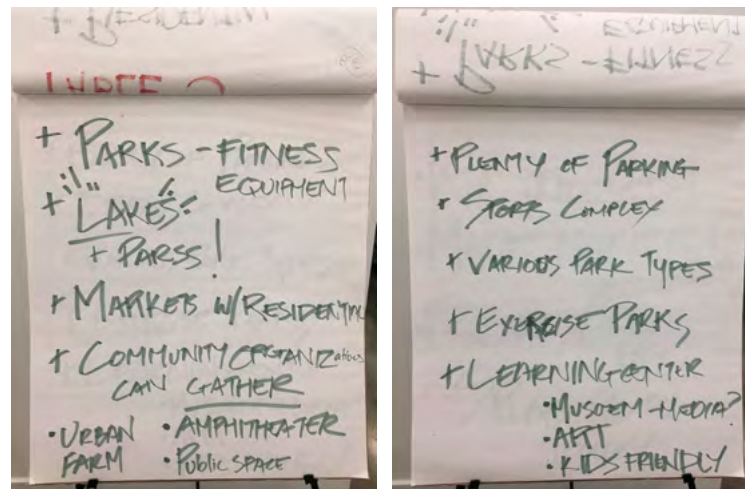 TABLE 2
+ PARKS - FITNESS
EQUIPMENT
+ LAKES
+ PARSS !
+ MARKETS W/ RESIDENTIAL
+ COMMUNITY ORGANIZations
CAN GATHER
• URBAN FARM
• AMPHITHEATER
• Public SPACE
+ PARKS - FITNESS
EQUIPMENT
+ PLENTY OF PARKING
+ SPORTS COMPLEX
+ VARIOUS PARK TYPES
+ EXERCISE PARKS
+ LEARNING CENTER
• MUSEUM - MEDIA?
• ART
• KIDS FRIENDLY